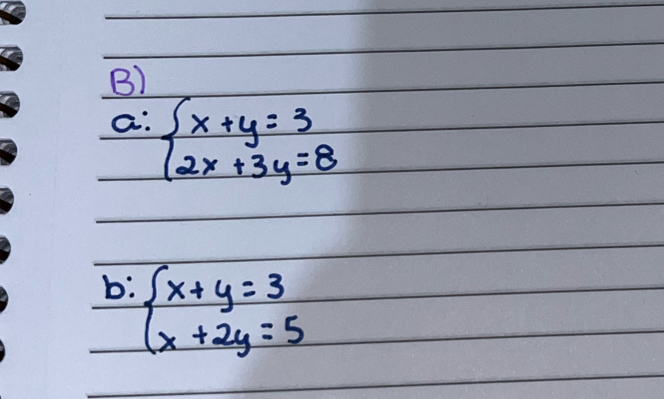 B)
a: { x + y = 3
{ 2x + 3y = 8
b: { x + y = 3
{ x + 2y = 5